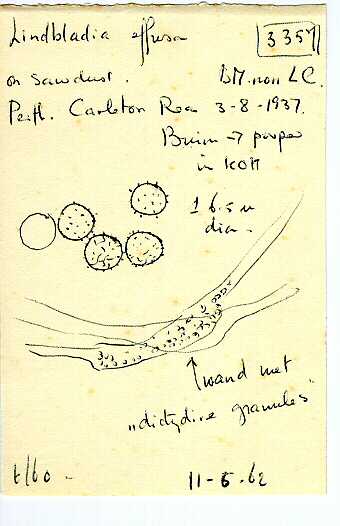 Lindbladia effusa
3357
on sawdust.
BM. non LC.
Perth. Carleton Rea 3-8-1937.
Bruin → purper
in KOH
± 6.5 µ
dia.
↑ wand met
„dictydine granules"
t/60
11-6-62